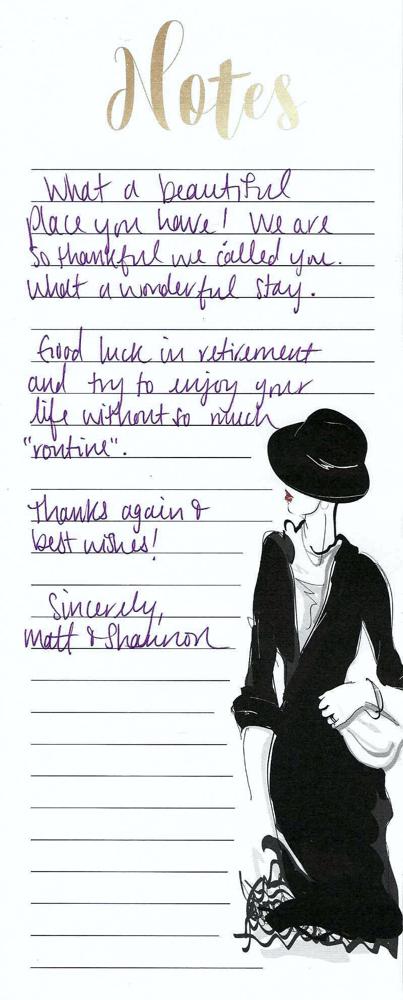 Notes
What a beautiful
place you have! We are
so thankful we called you.
What a wonderful stay.
Good luck in retirement
and try to enjoy your
life without so much
"routine".
Thanks again &
best wishes!
Sincerely,
Matt & Shannon